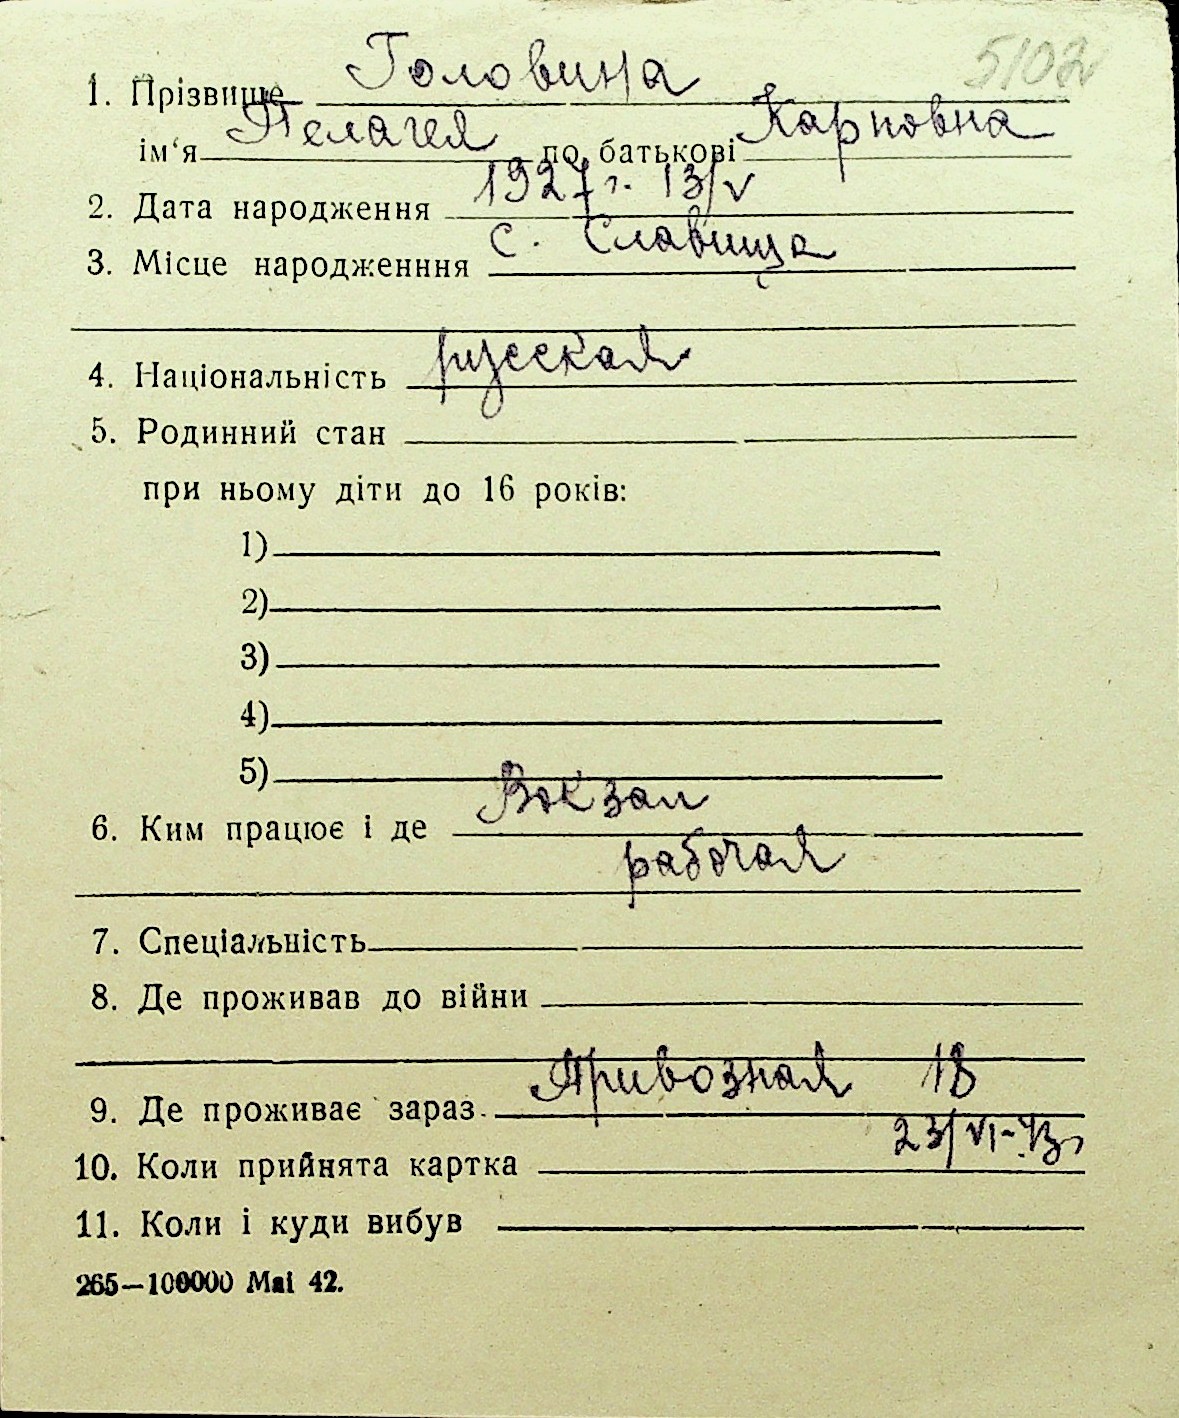 5102
1. Прізвище Головина
ім‘я Пелагея по батькові Карповна
2. Дата народження 1927 г. 13/V
3. Місце народженння с. Славища
4. Національність русская
5. Родинний стан
при ньому діти до 16 років:
1)
2)
3)
4)
5)
6. Ким працює і де Вокзал
рабочая
7. Спеціальність
8. Де проживав до війни
9. Де проживає зараз Привозная 18
10. Коли прийнята картка 23/VI-43г
11. Коли і куди вибув
265—100000 Mai 42.